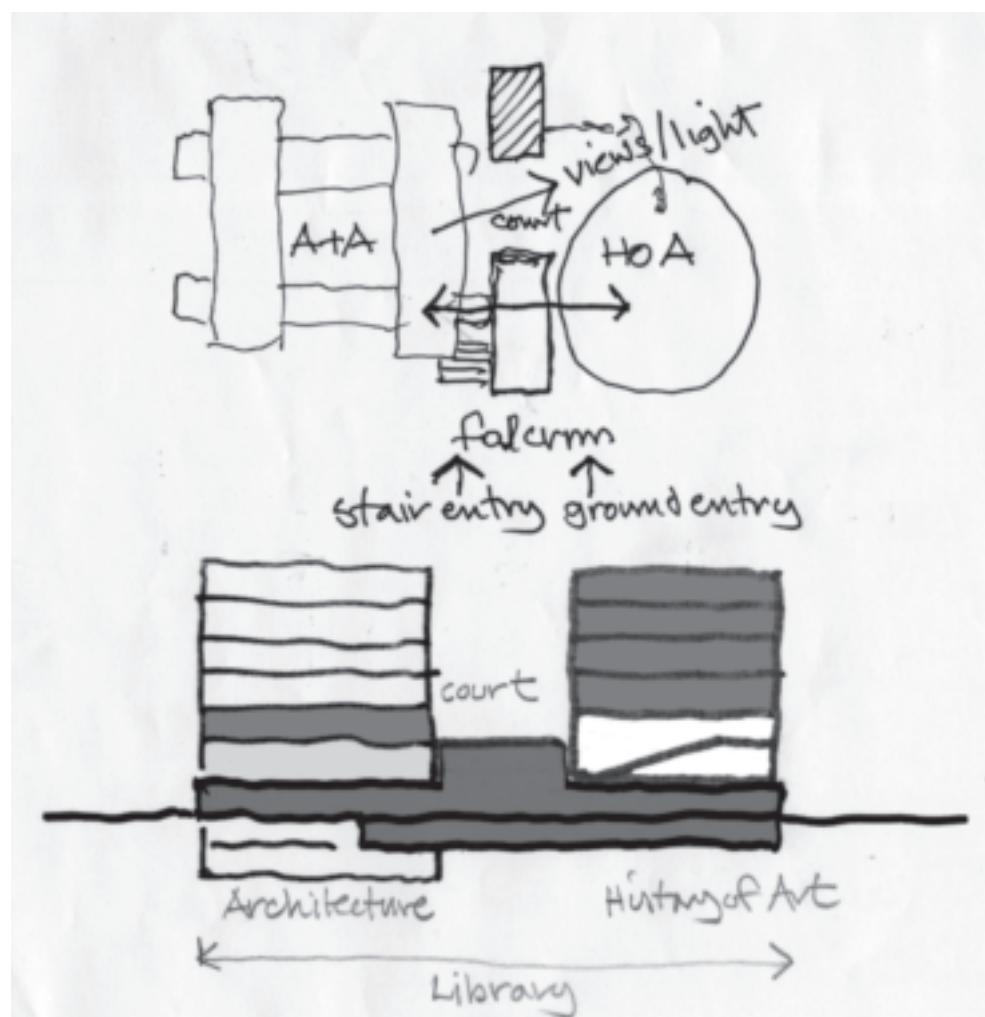 views/light
court
A+A
HOA
falcrum
stair entry ground entry
court
Architecture
History of Art
Library